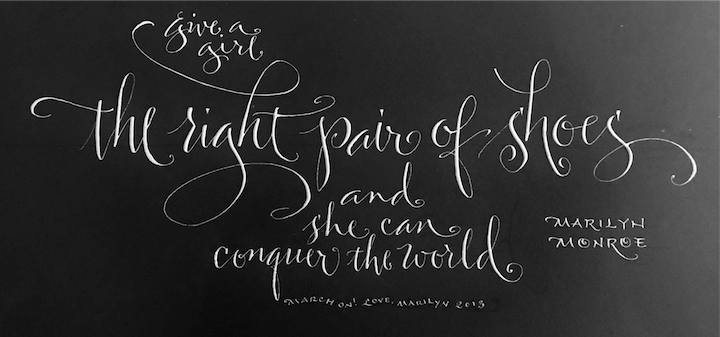 give a
girl
the right pair of shoes
and
she can
conquer the world
MARILYN
MONROE
MARCH ON! LOVE, MARILYN 2013